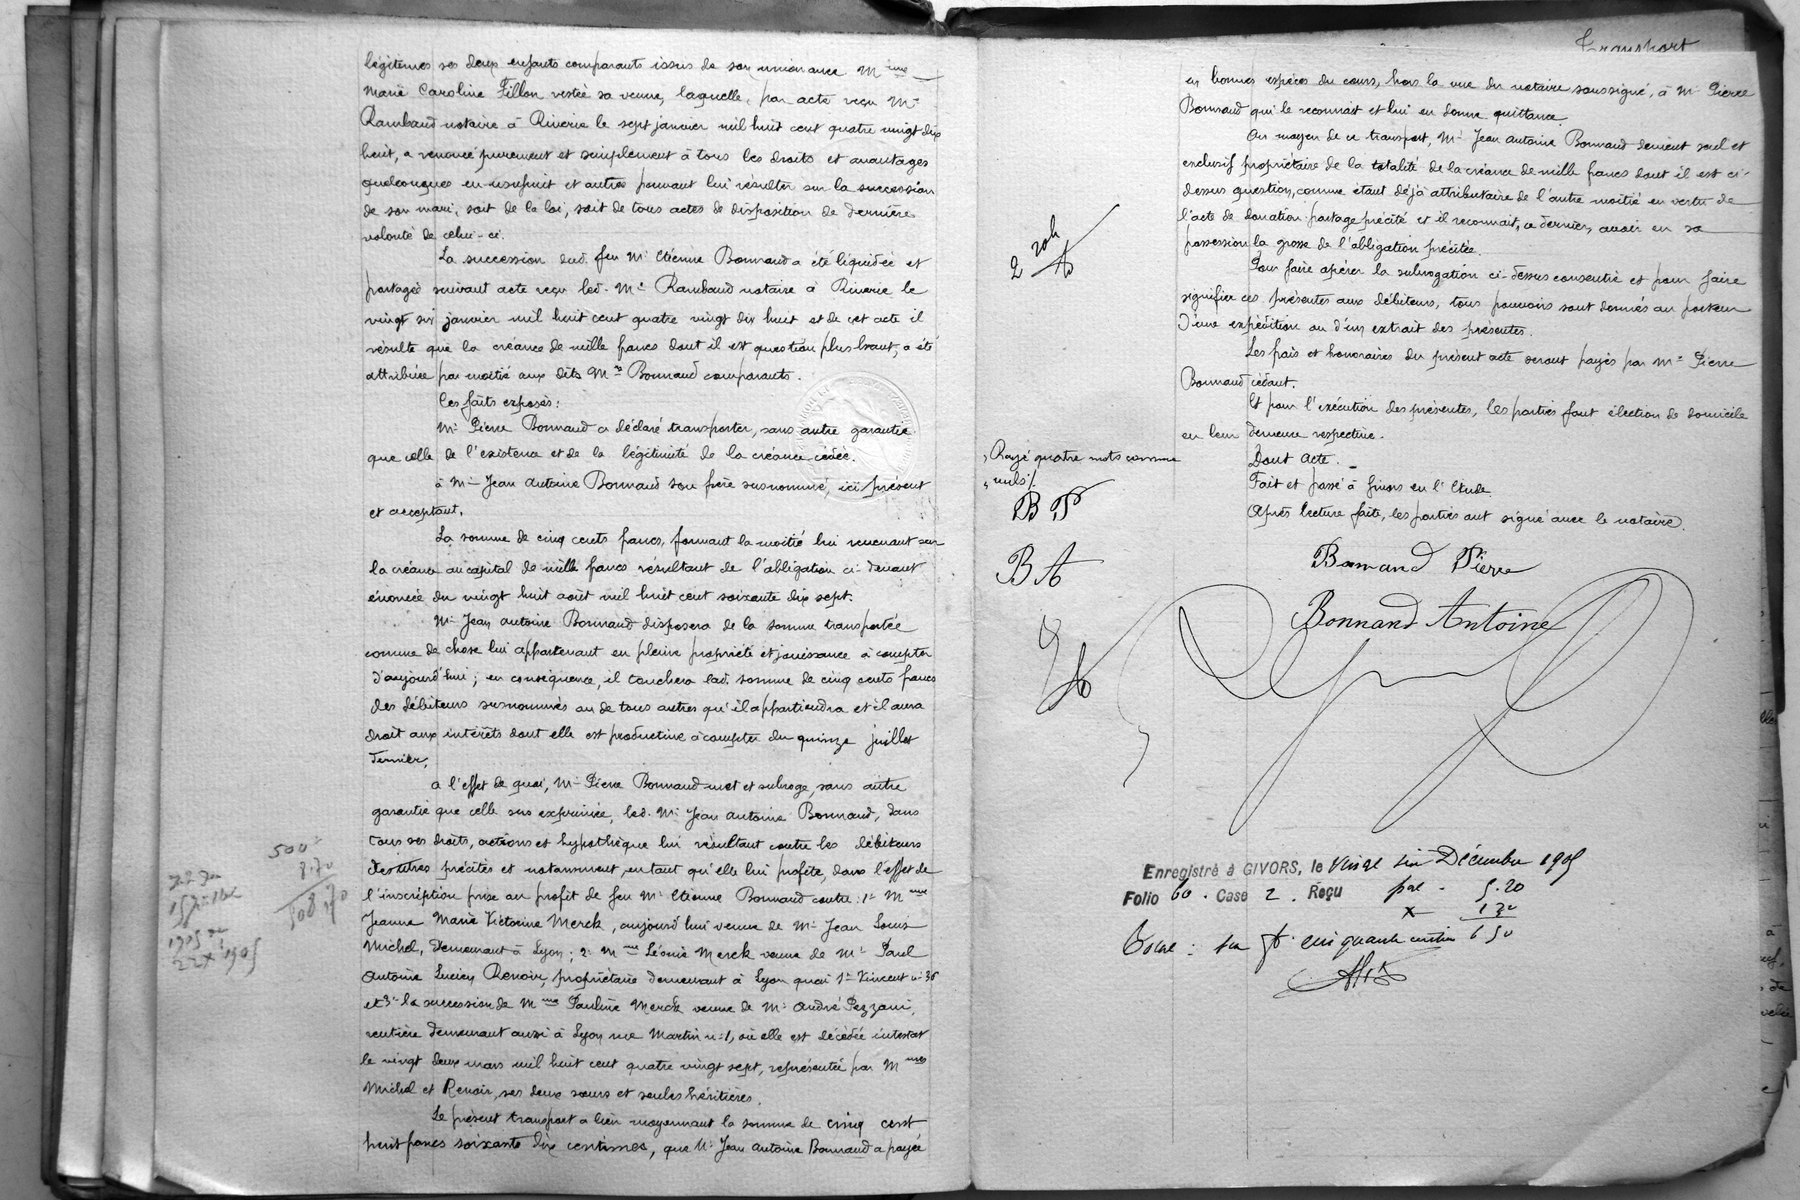 légitimes ses deux enfants comparants issus de son union avec Mme
Marie Caroline Fillon restée sa veuve, laquelle, par acte reçu Me
Rambaud notaire à Riverie le sept janvier mil huit cent quatre vingt dix
huit, a renoncé purement et simplement à tous les droits et avantages
quelconques en usufruit et autres pouvant lui résulter sur la succession
de son mari, soit de la loi, soit de tous actes de disposition de dernière
volonté de celui-ci.
La succession dud. feu Mr Etienne Bonnand a été liquidée et
partagée suivant acte reçu led. Me Rambaud notaire à Riverie le
vingt six janvier mil huit cent quatre vingt dix huit et de cet acte il
résulte que la créance de mille francs dont il est question plus haut, a été
attribuée par moitié aux dits Mrs Bonnand comparants.
Ces faits exposés:
Mr Pierre Bonnand a déclaré transporter, sans autre garantie
que celle de l'existence et de la légitimité de la créance cédée.
à Mr Jean Antoine Bonnand son frère susnommé, ici présent
et acceptant.
La somme de cinq cents francs, formant la moitié lui revenant sur
la créance au capital de mille francs résultant de l'obligation ci-devant
énoncée du vingt huit août mil huit cent soixante dix sept.
Mr Jean Antoine Bonnand disposera de la somme transportée
comme de chose lui appartenant en pleine propriété et jouissance à compter
d'aujourd'hui; en conséquence, il touchera lad. somme de cinq cents francs
des débiteurs susnommés ou de tous autres qu'il appartiendra et il aura
droit aux intérêts dont elle est productive à compter du quinze juillet
dernier.
A l'effet de quoi, Mr Pierre Bonnand met et subroge, sans autre
garantie que celle sus exprimée, led. Mr Jean Antoine Bonnand, dans
tous ses droits, actions et hypothèque lui résultant contre les débiteurs
des titres précités et notamment, en tant qu'elle lui profite, dans l'effet de
l'inscription prise au profit de feu Mr Etienne Bonnand contre: 1° Mme
Jeanne Marie Victorine Merck, aujourd'hui veuve de Mr Jean Louis
Michel, demeurant à Lyon; 2° Mme Léonie Merck veuve de Mr Paul
Antoine Lucien Renoir, propriétaire demeurant à Lyon quai St Vincent n° 36
et 3° la succession de Mme Pauline Merck veuve de Mr André Pezzani,
rentière demeurant aussi à Lyon rue Martin n° 1, où elle est décédée intestat
le vingt deux mars mil huit cent quatre vingt sept, représentée par Mmes
Michel et Renoir, ses deux sœurs et seules héritières.
Le présent transport a lieu moyennant la somme de cinq cent
huit francs soixante dix centimes, que Mr Jean Antoine Bonnand a payée
500
8.70
508.70
15 Juillet
1905
22 x 1905
Transport
en bonnes espèces du cours, hors la vue du notaire soussigné, à Mr Pierre
Bonnand qui le reconnait et lui en donne quittance.
Au moyen de ce transport, Mr Jean Antoine Bonnand devient seul et
exclusif propriétaire de la totalité de la créance de mille francs dont il est ci-
dessus question, comme étant déjà attributaire de l'autre moitié en vertu de
l'acte de donation-partage précité et il reconnait, ce dernier, avoir en sa
possession la grosse de l'obligation précitée.
Pour faire opérer la subrogation ci-dessus consentie et pour faire
signifier ces présentes aux débiteurs, tous pouvoirs sont donnés au porteur
d'une expédition ou d'un extrait des présentes.
Les frais et honoraires du présent acte seront payés par Mr Pierre
Bonnand cédant.
Et pour l'exécution des présentes, les parties font élection de domicile
en leur demeure respective.
Dont acte.
Fait et passé à Givors en l'Etude.
Après lecture faite, les parties ont signé avec le notaire.
Rayé quatre mots comme
nuls/.
B P
B A
Bonnand Pierre
Bonnand Antoine
Enregistré à GIVORS, le vingt six Décembre 1905
Folio 60. Case 2. Reçu 5.20
1 30
6 50